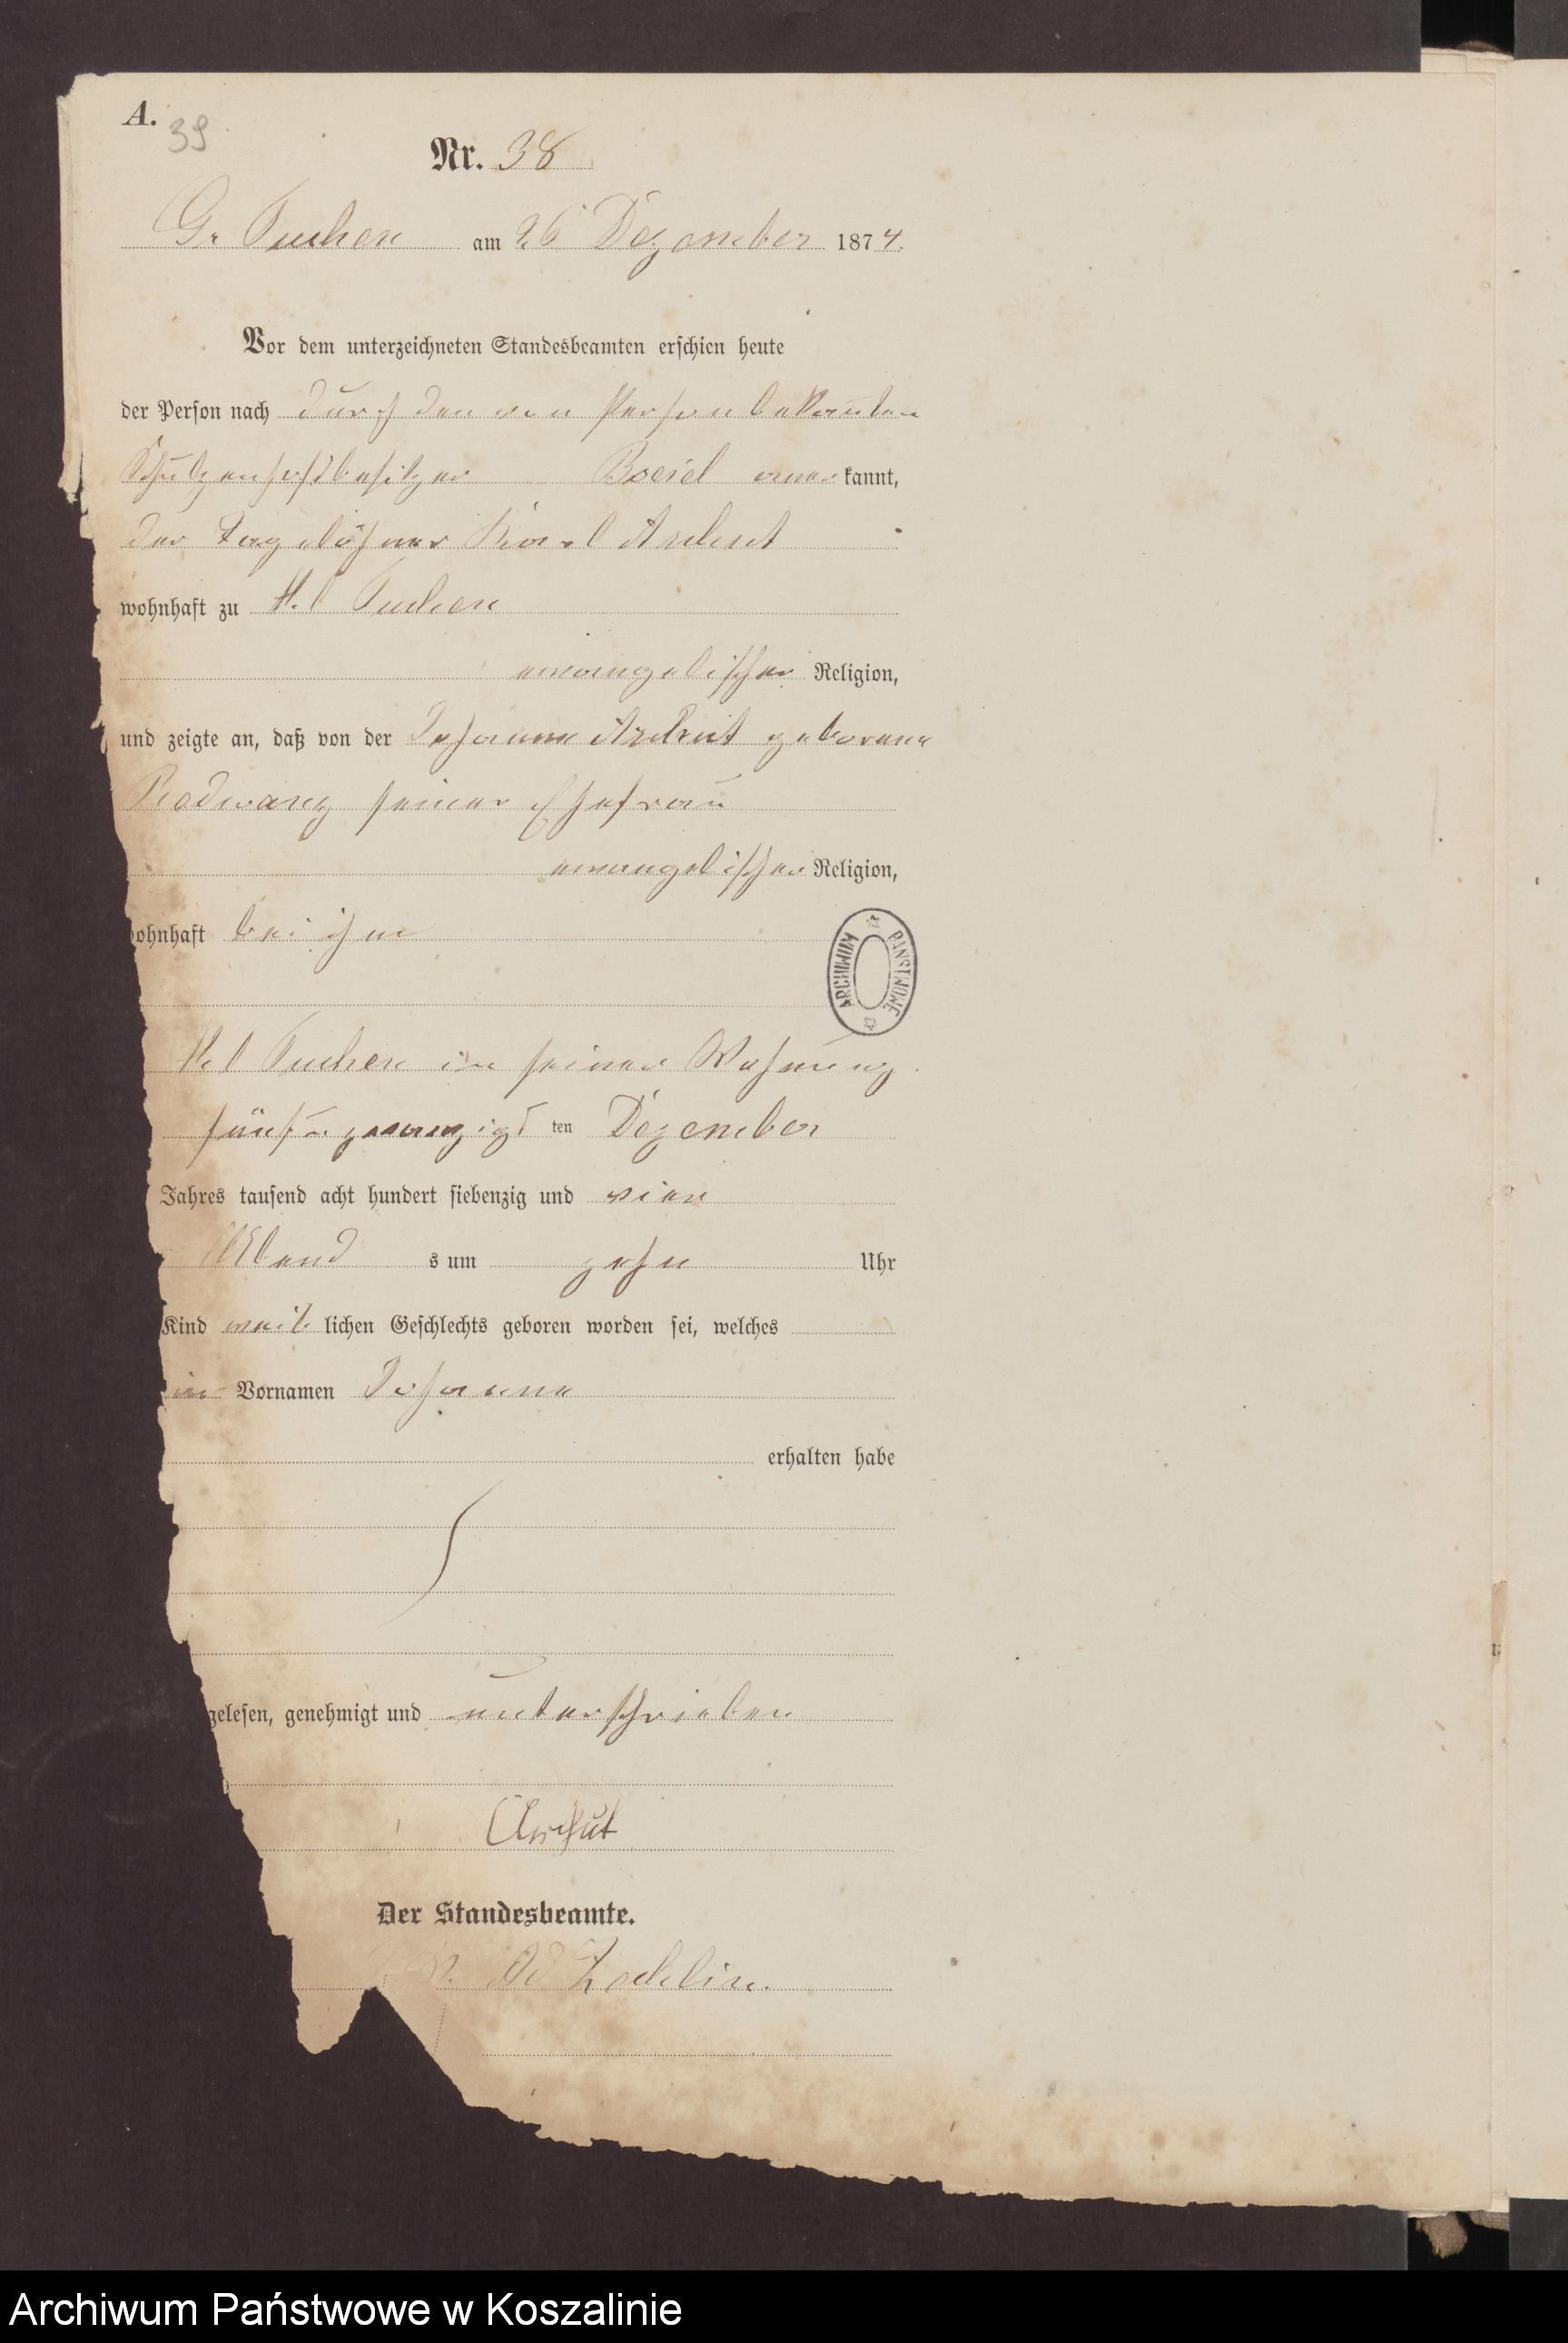 A.
39
Nr. 38
Gr Tuchen am 26 Dezember 1874.
Vor dem unterzeichneten Standesbeamten erschien heute
der Person nach durch den von Person bekannten
Schulzenhofsbesitzer kannt,
der Tagelöhner Karl
wohnhaft zu Kl Tuchen
evangelischer Religion,
und zeigte an, daß von der Johanne geborene
seiner Ehefrau
evangelischer Religion,
ohnhaft bei ihm
ARCHIWUM PAŃSTWOWE
Kl Tuchen in seiner Wohnung
fünf u zwanzigs ten Dezember
Jahres tausend acht hundert siebenzig und vier
Abend s um zehn Uhr
Kind weib lichen Geschlechts geboren worden sei, welches
Vornamen Johanne
erhalten habe
gelesen, genehmigt und unterschrieben
Der Standesbeamte.
Archiwum Państwowe w Koszalinie